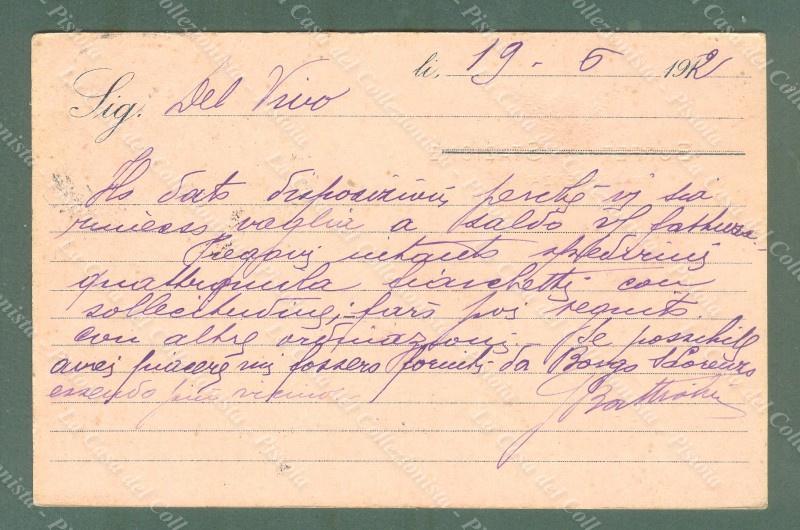 li, 19 - 6 1912
Sig. Del Vivo
Ho dato disposizioni perché vi sia
rimesso vaglia a saldo Vs fattura.
Pregovi intanto spedirmi
quattromila fiaschetti con
sollecitudine; farò poi seguito
con altre ordinazioni. Se possibile
avrei piacere mi fossero forniti da Borgo S Lorenzo
essendo più vicino.
La Casa del Collezionista - Pistoia